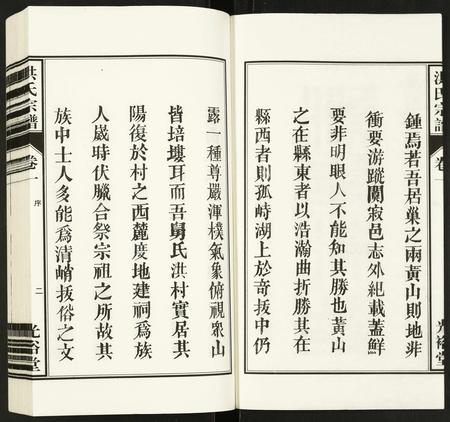 洪氏宗譜
卷一
光裕堂
鍾焉若吾居巢之兩黃山則地非
衝要游蹤闃寂邑志外紀載蓋鮮
要非明眼人不能知其勝也黃山
之在縣東者以浩瀚曲折勝其在
縣西者則孤峙湖上於奇拔中仍
露一種尊嚴渾樸氣象俯視眾山
皆培塿耳而吾舅氏洪村實居其
陽復於村之西麓度地建祠爲族
人歲時伏臘合祭宗祖之所故其
族中士人多能爲清峭拔俗之文
洪氏宗譜
卷一
序
二
光裕堂